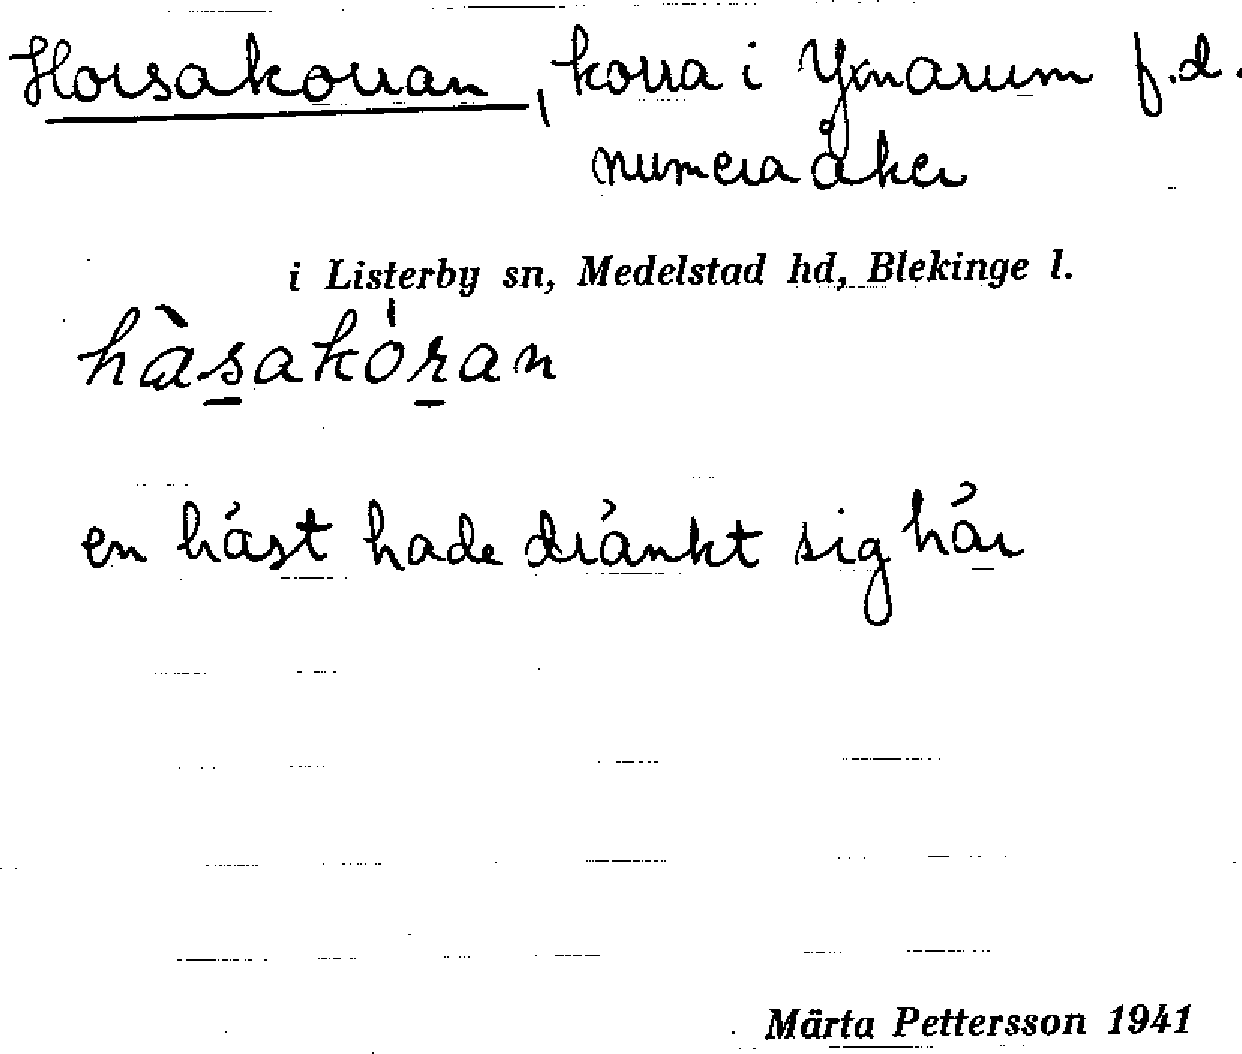 Horsakorran, korra i Ymarum f.d.
numera åker
i Listerby sn, Medelstad hd, Blekinge l.
hàsakóran
en häst hade dränkt sig här
Märta Pettersson 1941